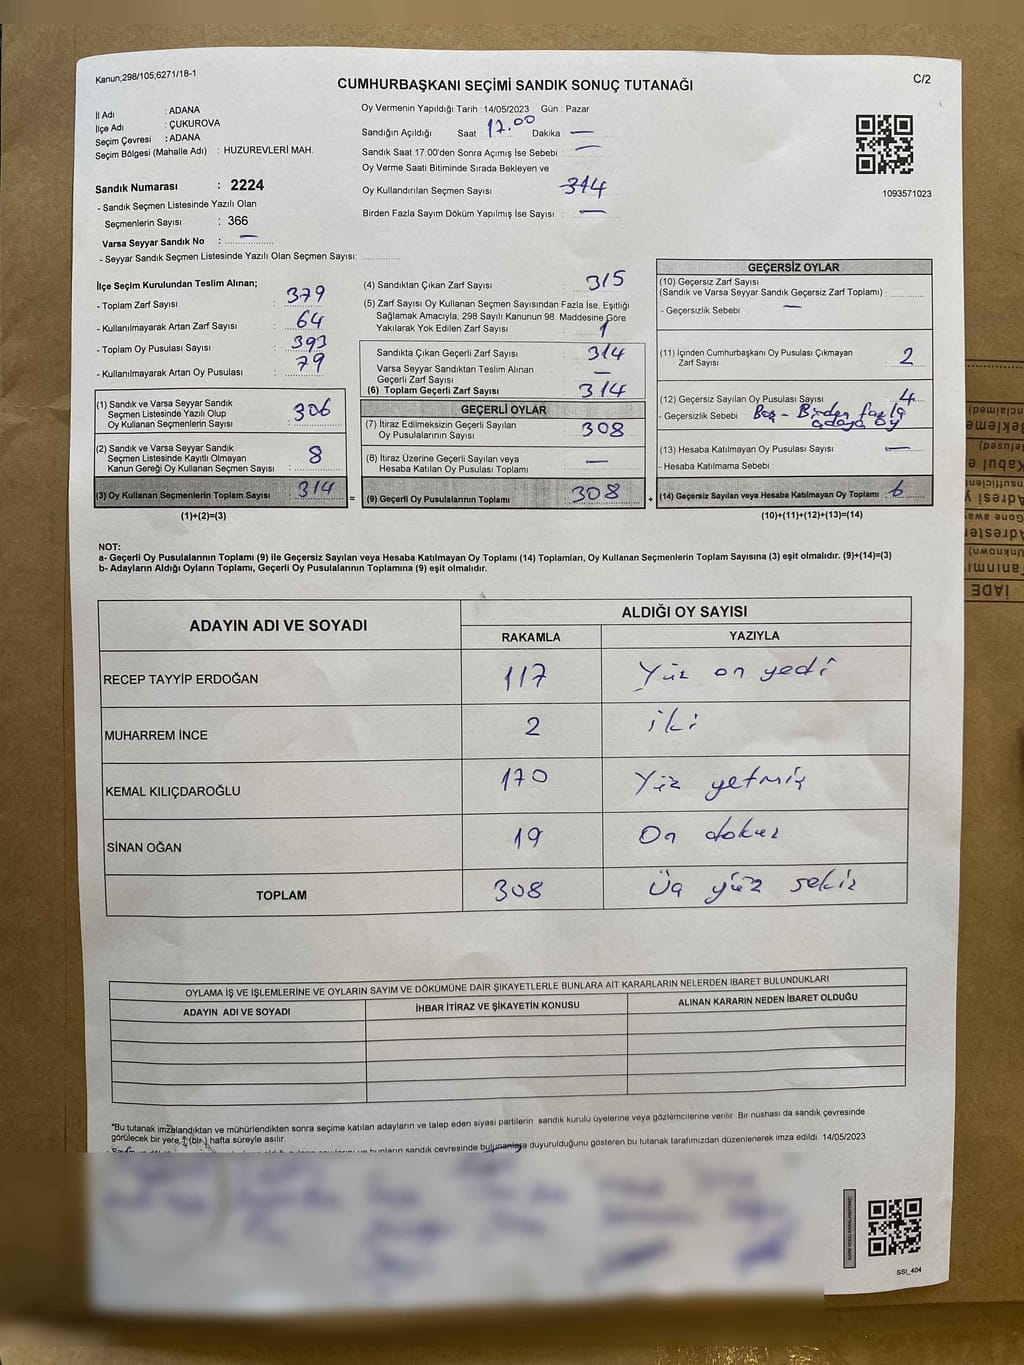 Kanun;298/105;6271/18-1
C/2
CUMHURBAŞKANI SEÇİMİ SANDIK SONUÇ TUTANAĞI
İl Adı : ADANA
İlçe Adı : ÇUKUROVA
Seçim Çevresi : ADANA
Seçim Bölgesi (Mahalle Adı) : HUZUREVLERİ MAH.
Sandık Numarası : 2224
- Sandık Seçmen Listesinde Yazılı Olan
Seçmenlerin Sayısı : 366
Varsa Seyyar Sandık No : —
- Seyyar Sandık Seçmen Listesinde Yazılı Olan Seçmen Sayısı:
Oy Vermenin Yapıldığı Tarih : 14/05/2023 Gün : Pazar
Sandığın Açıldığı Saat 17.00 Dakika —
Sandık Saat 17:00'den Sonra Açımış İse Sebebi : —
Oy Verme Saati Bitiminde Sırada Bekleyen ve
Oy Kullandırılan Seçmen Sayısı 314
Birden Fazla Sayım Döküm Yapılmış İse Sayısı : —
1093571023
İlçe Seçim Kurulundan Teslim Alınan;
- Toplam Zarf Sayısı : 379
- Kullanılmayarak Artan Zarf Sayısı : 64
- Toplam Oy Pusulası Sayısı : 393
- Kullanılmayarak Artan Oy Pusulası : 79
(1) Sandık ve Varsa Seyyar Sandık
Seçmen Listesinde Yazılı Olup
Oy Kullanan Seçmenlerin Sayısı : 306
(2) Sandık ve Varsa Seyyar Sandık
Seçmen Listesinde Kayıtlı Olmayan
Kanun Gereği Oy Kullanan Seçmen Sayısı : 8
(3) Oy Kullanan Seçmenlerin Toplam Sayısı : 314
(1)+(2)=(3)
(4) Sandıktan Çıkan Zarf Sayısı : 315
(5) Zarf Sayısı Oy Kullanan Seçmen Sayısından Fazla İse, Eşitliği
Sağlamak Amacıyla, 298 Sayılı Kanunun 98. Maddesine Göre
Yakılarak Yok Edilen Zarf Sayısı : 1
Sandıkta Çıkan Geçerli Zarf Sayısı : 314
Varsa Seyyar Sandıktan Teslim Alınan
Geçerli Zarf Sayısı : —
(6) Toplam Geçerli Zarf Sayısı : 314
GEÇERLİ OYLAR
(7) İtiraz Edilmeksizin Geçerli Sayılan
Oy Pusulalarının Sayısı : 308
(8) İtiraz Üzerine Geçerli Sayılan veya
Hesaba Katılan Oy Pusulası Toplamı : —
= (9) Geçerli Oy Pusulalarının Toplamı : 308 +
GEÇERSİZ OYLAR
(10) Geçersiz Zarf Sayısı
(Sandık ve Varsa Seyyar Sandık Geçersiz Zarf Toplamı) :
- Geçersizlik Sebebi : —
(11) İçinden Cumhurbaşkanı Oy Pusulası Çıkmayan
Zarf Sayısı : 2
(12) Geçersiz Sayılan Oy Pusulası Sayısı : 4
- Geçersizlik Sebebi : Boş - Birden fazla
adaya oy
(13) Hesaba Katılmayan Oy Pusulası Sayısı : —
- Hesaba Katılmama Sebebi :
(14) Geçersiz Sayılan veya Hesaba Katılmayan Oy Toplamı : 6
(10)+(11)+(12)+(13)=(14)
NOT:
a- Geçerli Oy Pusulalarının Toplamı (9) ile Geçersiz Sayılan veya Hesaba Katılmayan Oy Toplamı (14) Toplamları, Oy Kullanan Seçmenlerin Toplam Sayısına (3) eşit olmalıdır. (9)+(14)=(3)
b- Adayların Aldığı Oyların Toplamı, Geçerli Oy Pusulalarının Toplamına (9) eşit olmalıdır.
ADAYIN ADI VE SOYADI ALDIĞI OY SAYISI
RAKAMLA YAZIYLA
RECEP TAYYİP ERDOĞAN 117 Yüz on yedi
MUHARREM İNCE 2 iki
KEMAL KILIÇDAROĞLU 170 Yüz yetmiş
SİNAN OĞAN 19 On dokuz
TOPLAM 308 Üç yüz sekiz
OYLAMA İŞ VE İŞLEMLERİNE VE OYLARIN SAYIM VE DÖKÜMÜNE DAİR ŞİKAYETLERLE BUNLARA AİT KARARLARIN NELERDEN İBARET BULUNDUKLARI
ADAYIN ADI VE SOYADI İHBAR İTİRAZ VE ŞİKAYETİN KONUSU ALINAN KARARIN NEDEN İBARET OLDUĞU
*Bu tutanak imzalandıktan ve mühürlendikten sonra seçime katılan adayların ve talep eden siyasi partilerin sandık kurulu üyelerine veya gözlemcilerine verilir. Bir nüshası da sandık çevresinde
görülecek bir yere, 1 (bir) hafta süreyle asılır.
bunların sandık çevresinde bulunanlara duyurulduğunu gösteren bu tutanak tarafımızdan düzenlenerek imza edildi. 14/05/2023
SSİ_404
İADE